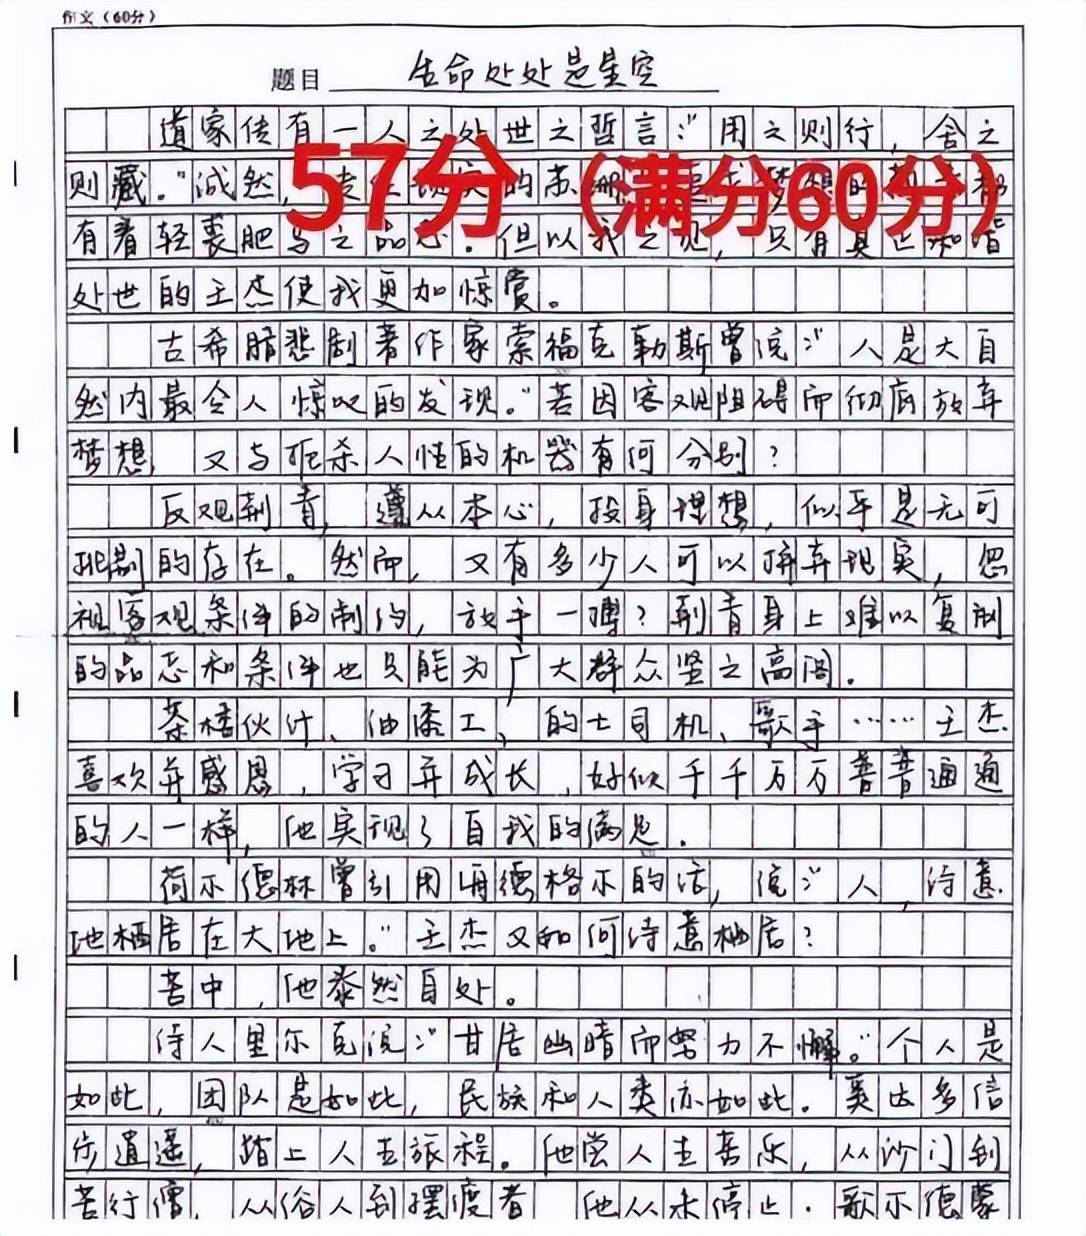 作文（60分）
题目 生命处处是星空
道家传有一人之处世之哲言："用之则行，舍之
57分（满分60分）
则藏。"诚然，的苏
有着轻裘肥马之品志。但以我之见，只有具
处世的王杰使我更加惊赏。
古希腊悲剧著作家索福克勒斯曾说："人是大自
然内最令人惊叹的发现。"若因客观阻碍而彻底放弃
梦想，又与扼杀人性的机器有何分别？
反观荆青，遵从本心，投身理想，似乎是无可
批制的存在。然而，又有多少人可以摒弃现实，忽
视客观条件的制约，放手一搏？荆青身上难以复制
的品志和条件也只能为广大群众竖之高阁。
茶楼伙计、油漆工、的士司机、歌手……王杰
喜欢并感恩，学习并成长，好似千千万万普普通通
的人一样，他实现了自我的满足。
荷尔德林曾引用海德格尔的话，说："人，诗意
地栖居在大地上。"王杰又如何诗意栖居？
苦中，他泰然自处。
诗人里尔克说："甘居幽暗而努力不懈。"个人是
如此，团队是如此，民族和人类亦如此。奚达多信
步逍遥，踏上人去旅程。他尝人去喜乐，从沙门到
苦行僧，从俗人到摆渡者 他从未停止。歌尔德蒙